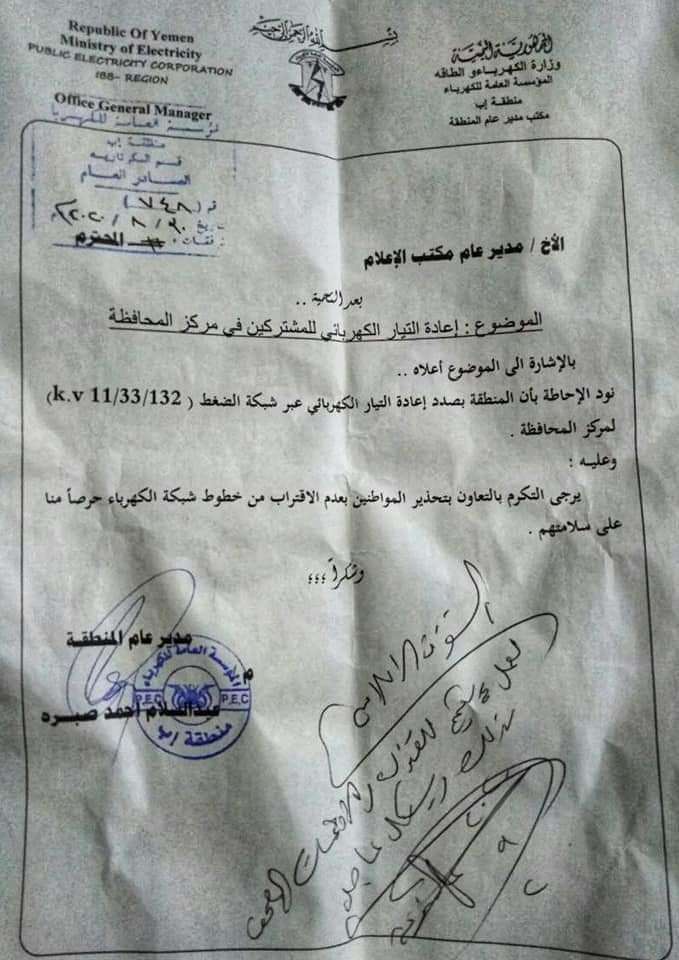 بسم الله الرحمن الرحيم
Republic Of Yemen
Ministry of Electricity
PUBLIC ELECTRICITY CORPORATION
IBB- REGION
Office General Manager
الجمهورية اليمنية
وزارة الكهرباء و الطاقه
المؤسسة العامة للكهرباء
منطقة إب
مكتب مدير عام المنطقة
مؤسسة العامة للكهرباء
منطقة إب
قسم السكرتارية
الصادر العام
قم (٧٤٨)
ريخ ٣٠ / ٨ / ٢٠٢٠م
فقات:
الأخ / مدير عام مكتب الإعلام المحترم
بعد التحية ..
الموضوع : إعادة التيار الكهربائي للمشتركين في مركز المحافظة
بالإشارة الى الموضوع أعلاه ..
نود الإحاطة بأن المنطقة بصدد إعادة التيار الكهربائي عبر شبكة الضغط ( k.v 11/33/132)
لمركز المحافظة .
وعليه :
يرجى التكرم بالتعاون بتحذير المواطنين بعدم الاقتراب من خطوط شبكة الكهرباء حرصاً منا
على سلامتهم .
وشكراً ؛؛؛
مدير عام المنطقة
م
عبدالسلام أحمد صبره
المؤسسة العامة للكهرباء
P.E.C P.E.C
منطقة إب